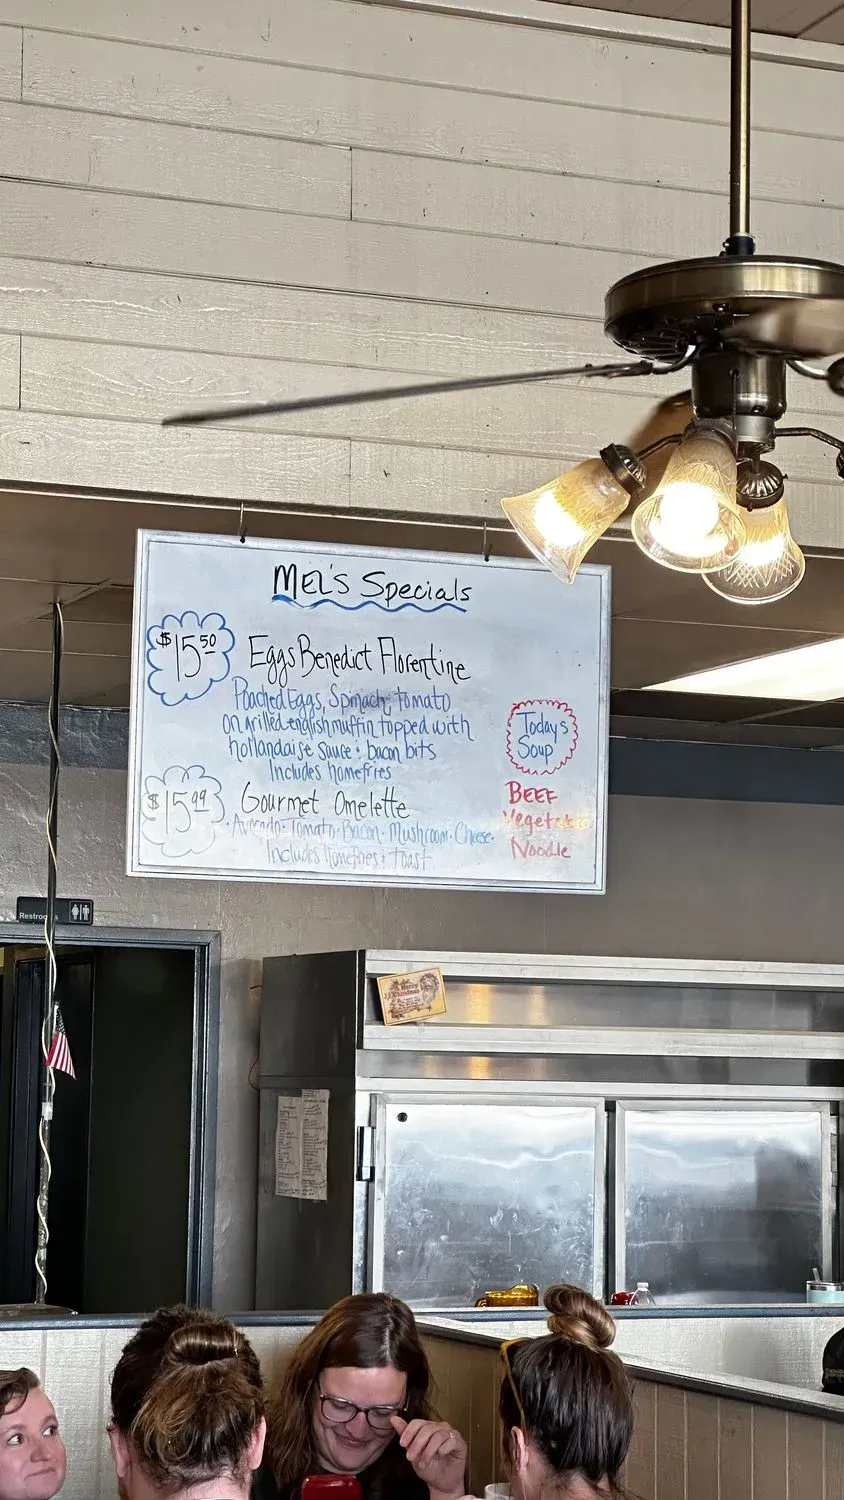 MEL'S Specials
$15.50 Eggs Benedict Florentine
Poached Eggs, Spinach, tomato
on grilled english muffin topped with
hollandaise sauce & bacon bits
Includes homefries
$15.99 Gourmet Omelette
·Avocado·Tomato·Bacon·Mushroom·Cheese·
Includes homefries & toast
Today's
Soup
BEEF
Vegetable
Noodle
Restrooms